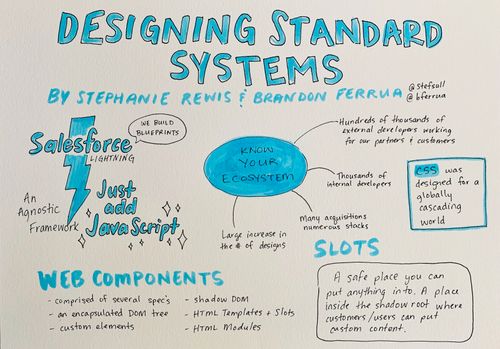 DESIGNING STANDARD
SYSTEMS
BY STEPHANIE REWIS & BRANDON FERRUA
@stefsull
@bferrua
WE BUILD
BLUEPRINTS
Salesforce
LIGHTNING
An
Agnostic
Framework
Just
add
JavaScript
KNOW
YOUR
ECOSYSTEM
Hundreds of thousands of
external developers working
for our partners & customers
Thousands of
internal developers
Many acquisitions
numerous stacks
Large increase in
the # of designs
CSS was
designed for a
globally
cascading
world
WEB COMPONENTS
- comprised of several spec's
- an encapsulated DOM tree
- custom elements
- shadow DOM
- HTML Templates + Slots
- HTML Modules
SLOTS
A safe place you can
put anything into. A place
inside the shadow root where
customers/users can put
custom content.